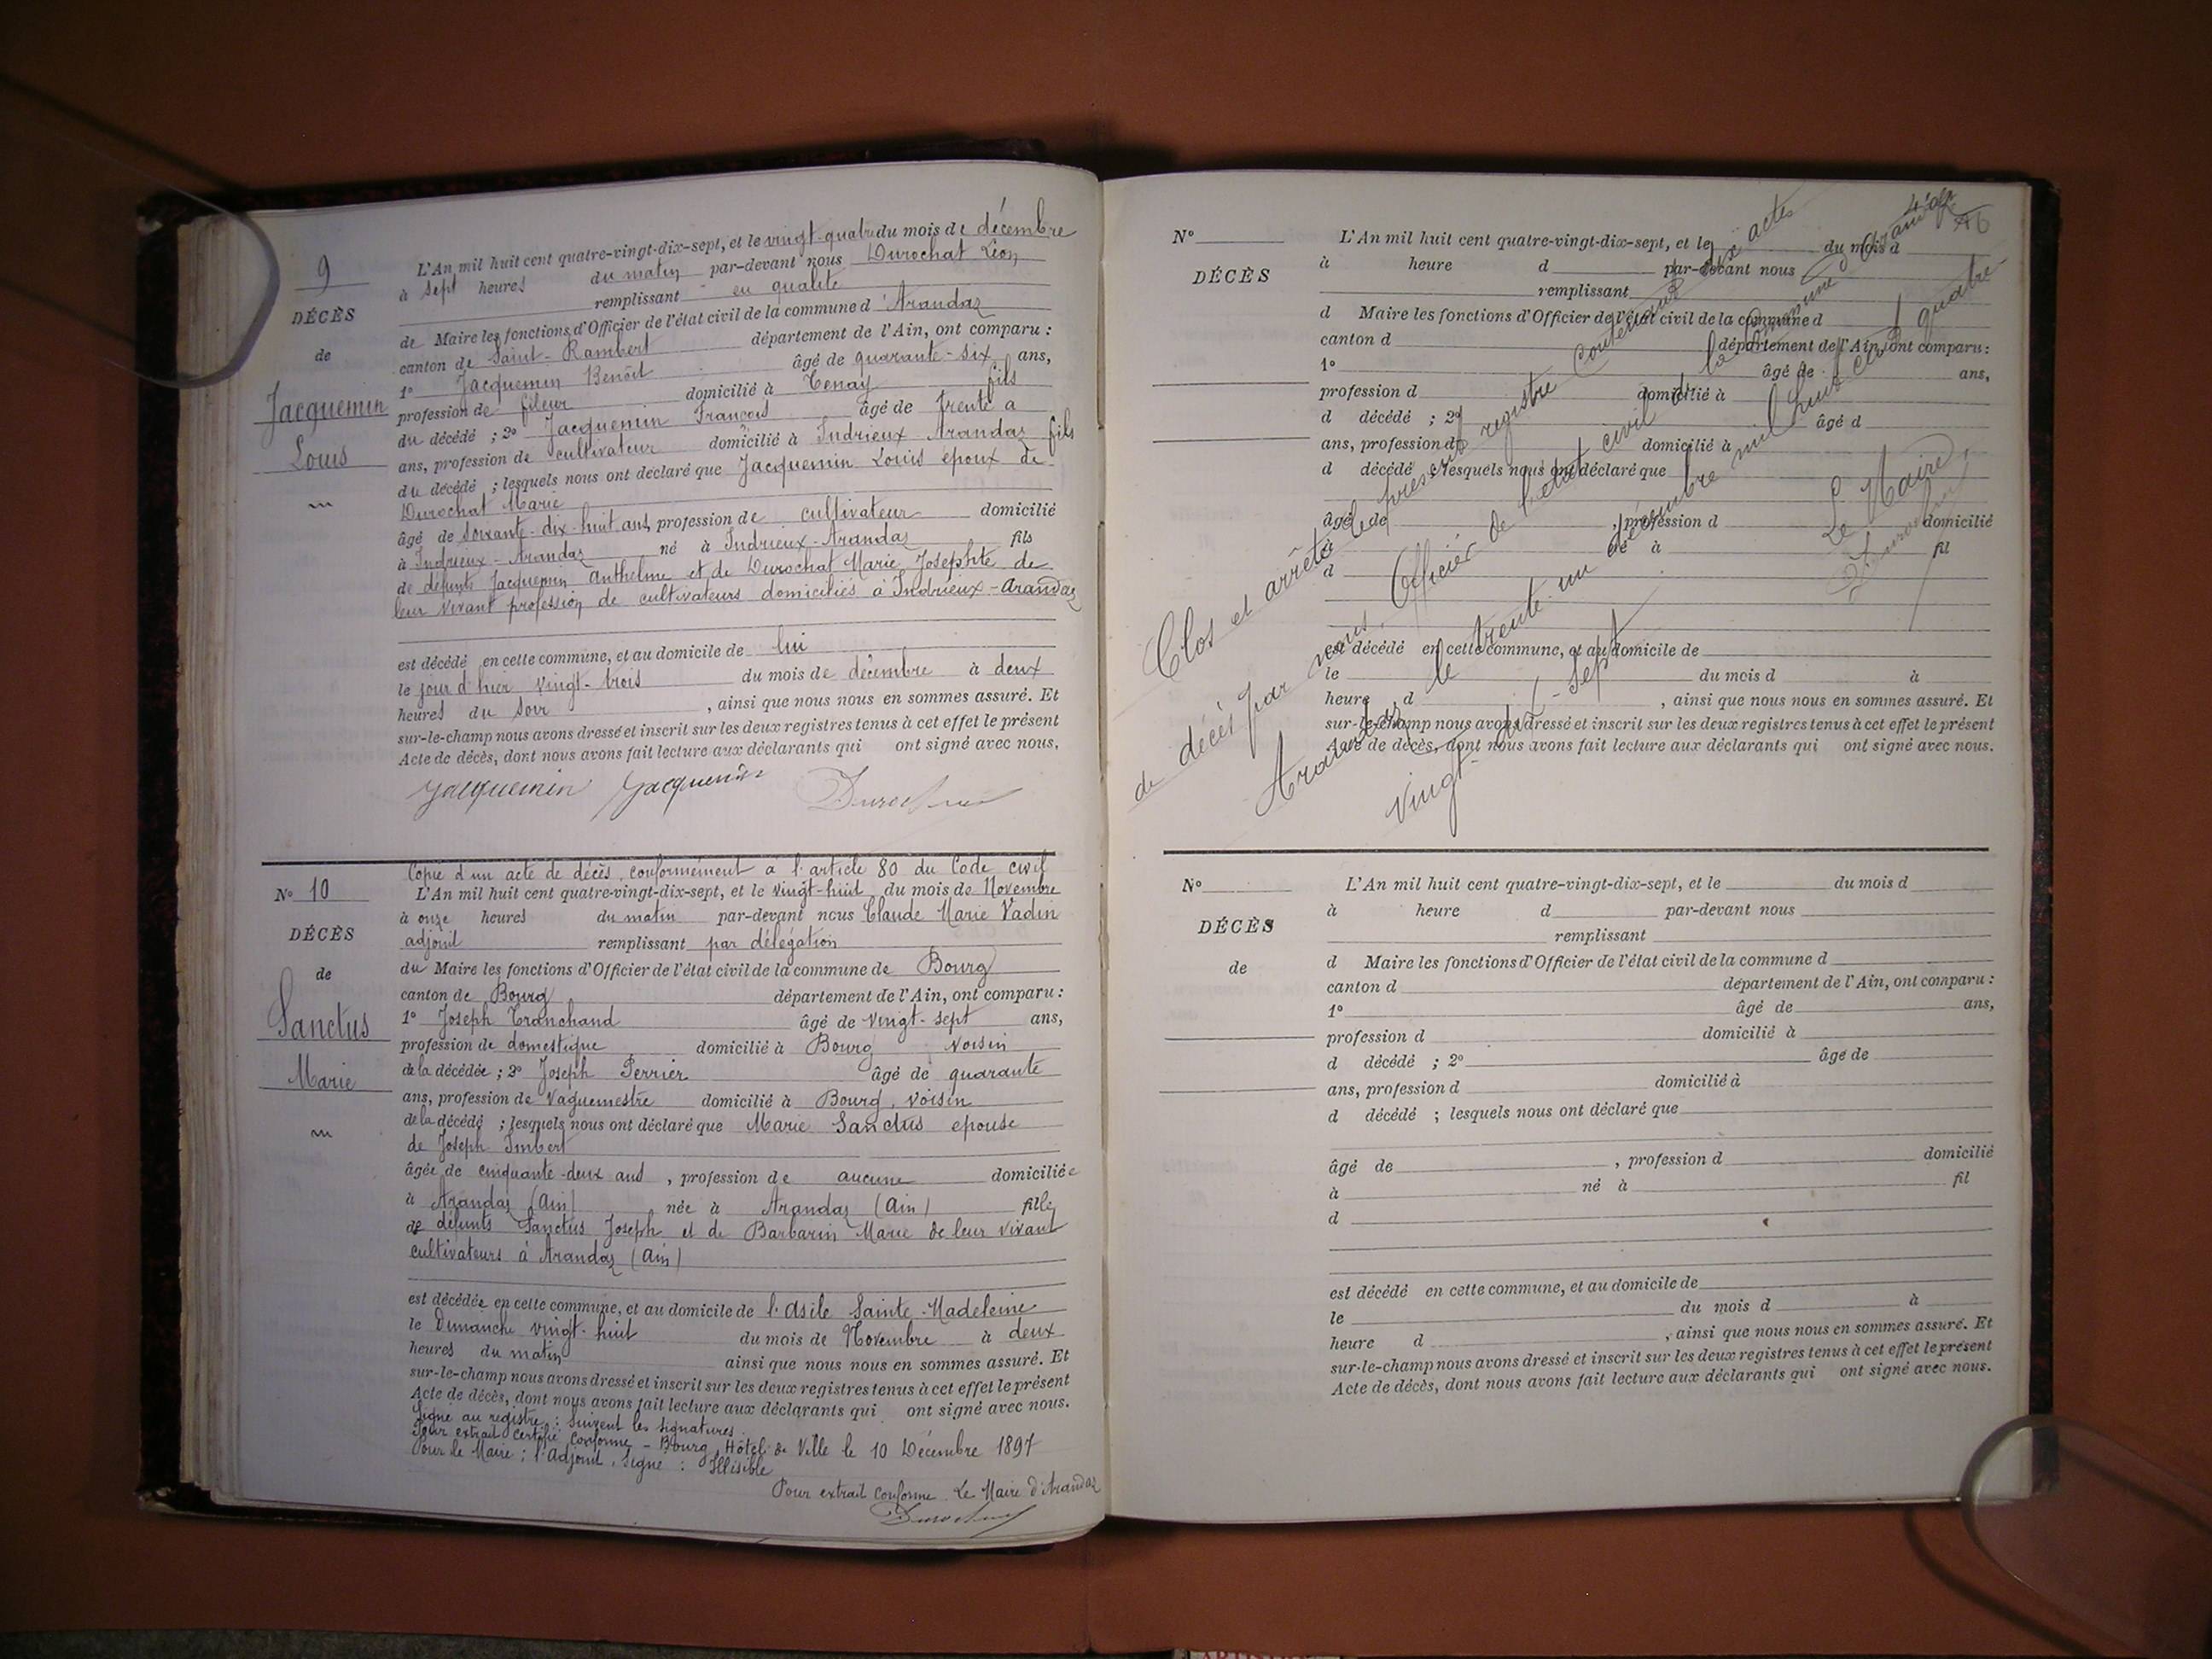 9
DÉCÈS
de
Jacquemin
Louis
L'An mil huit cent quatre-vingt-dix-sept, et le vingt-quatre du mois de décembre
à sept heures du matin par-devant nous Durochat Léon
remplissant en qualité
de Maire les fonctions d'Officier de l'état civil de la commune d'Arandas
canton de Saint-Rambert département de l'Ain, ont comparu :
1° Jacquemin Benoît âgé de quarante-six ans,
profession de fileur domicilié à Tenay fils
du décédé ; 2° Jacquemin François âgé de trente a
ans, profession de cultivateur domicilié à Indrieux Arandas fils
du décédé ; lesquels nous ont déclaré que Jacquemin Louis epoux de
Durochat Marie
âgé de soixante-dix-huit ans, profession de cultivateur domicilié
à Indrieux-Arandas né à Indrieux-Arandas fils
de défunts Jacquemin Anthelme et de Durochat Marie Josephte de
leur vivant profession de cultivateurs domiciliés à Indrieux-Arandas
est décédé en cette commune, et au domicile de lui
le jour d'hier vingt-trois du mois de décembre à deux
heures du soir , ainsi que nous nous en sommes assuré. Et
sur-le-champ nous avons dressé et inscrit sur les deux registres tenus à cet effet le présent
Acte de décès, dont nous avons fait lecture aux déclarants qui ont signé avec nous.
Jacquemin Jacquemin Durochat
N° 10
DÉCÈS
de
Sanctus
Marie
Copie d'un acte de décès, conformément à l'article 80 du Code civil
L'An mil huit cent quatre-vingt-dix-sept, et le vingt-huit du mois de Novembre
à onze heures du matin par-devant nous Claude Marie Vadin
adjoint remplissant par délégation
du Maire les fonctions d'Officier de l'état civil de la commune de Bourg
canton de Bourg département de l'Ain, ont comparu :
1° Joseph Tranchand âgé de vingt-sept ans,
profession de domestique domicilié à Bourg voisin
de la décédée ; 2° Joseph Perrier âgé de quarante
ans, profession de Vaguemestre domicilié à Bourg, voisin
de la décédé ; lesquels nous ont déclaré que Marie Sanctus epouse
de Joseph Imbert
âgée de cinquante-deux ans , profession de aucune domiciliée
à Arandas (Ain) née à Arandas (Ain) fille
de défunts Sanctus Joseph et de Barbarin Marie de leur vivant
cultivateurs à Arandas (Ain)
est décédée en cette commune, et au domicile de l'Asile Sainte-Madeleine
le Dimanche vingt-huit du mois de Novembre à deux
heures du matin ainsi que nous nous en sommes assuré. Et
sur-le-champ nous avons dressé et inscrit sur les deux registres tenus à cet effet le présent
Acte de décès, dont nous avons fait lecture aux déclarants qui ont signé avec nous.
Signé au registre : Suivent les signatures.
Pour extrait certifié conforme - Bourg, Hôtel de Ville le 10 Décembre 1897
Pour le Maire : l'Adjoint, Signé : Illisible
Pour extrait conforme. Le Maire d'Arandas
Durochat
N°
DÉCÈS
L'An mil huit cent quatre-vingt-dix-sept, et le du mois d
à heure d par-devant nous
remplissant
d Maire les fonctions d'Officier de l'état civil de la commune d
canton d département de l'Ain, ont comparu :
1° âgé de ans,
profession d domicilié à
d décédé ; 2° âgé d
ans, profession d domicilié à
d décédé ; lesquels nous ont déclaré que
âgé de , profession d domicilié
à né à fil
d
est décédé en cette commune, et au domicile de
le du mois d à
heure d , ainsi que nous nous en sommes assuré. Et
sur-le-champ nous avons dressé et inscrit sur les deux registres tenus à cet effet le présent
Acte de décès, dont nous avons fait lecture aux déclarants qui ont signé avec nous.
Clos et arrêté le présent registre contenant dix actes
de décès par nous, Officier de l'état civil de la Commune d'Arandas
Arandas le trente-un décembre mil huit cent quatre
vingt-dix-sept
Le Maire,
Durochat
N°
DÉCÈS
de
L'An mil huit cent quatre-vingt-dix-sept, et le du mois d
à heure d par-devant nous
remplissant
d Maire les fonctions d'Officier de l'état civil de la commune d
canton d département de l'Ain, ont comparu :
1° âgé de ans,
profession d domicilié à
d décédé ; 2° âgé de
ans, profession d domicilié à
d décédé ; lesquels nous ont déclaré que
âgé de , profession d domicilié
à né à fil
d
est décédé en cette commune, et au domicile de
le du mois d à
heure d , ainsi que nous nous en sommes assuré. Et
sur-le-champ nous avons dressé et inscrit sur les deux registres tenus à cet effet le présent
Acte de décès, dont nous avons fait lecture aux déclarants qui ont signé avec nous.